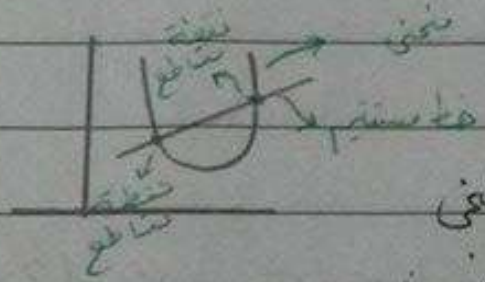 نقطة
تقاطع
منحنى
خط مستقيم
نقطة
تقاطع